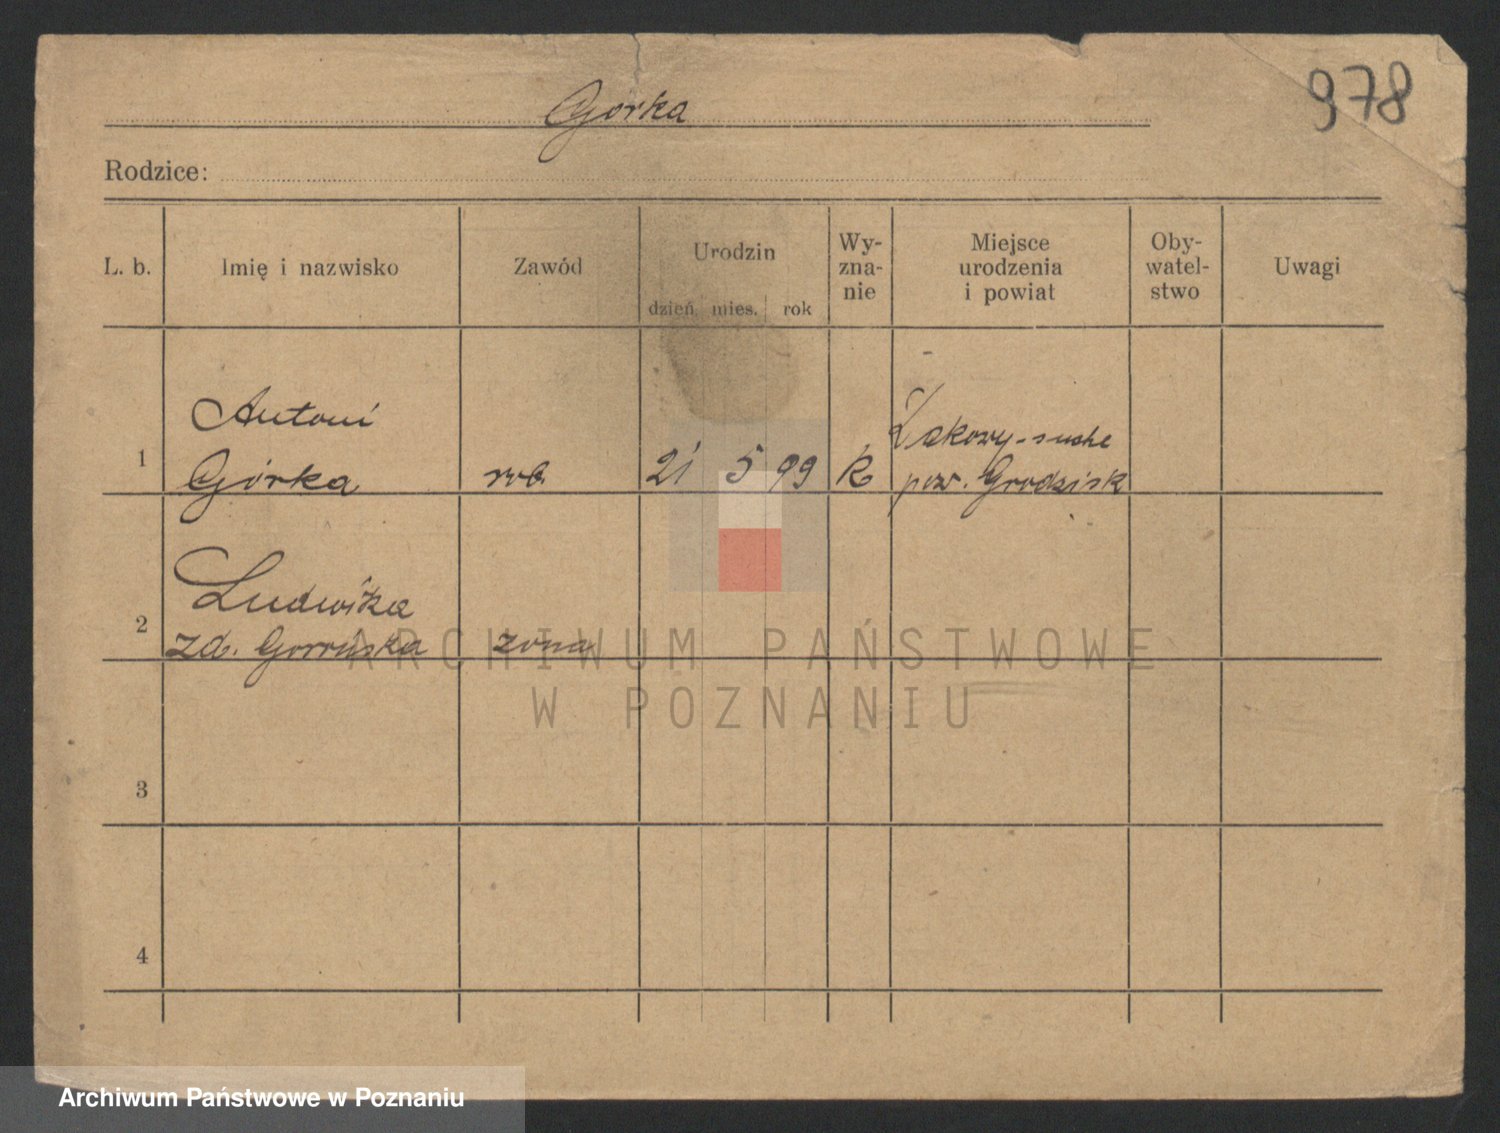 978
Górka
Rodzice:
L. b.
Imię i nazwisko
Zawód
Urodzin
dzień mies. rok
Wy-
zna-
nie
Miejsce
urodzenia
i powiat
Oby-
watel-
stwo
Uwagi
Antoni
1 Górka rob. 21 5 99 k
Żakowy-suche
pow. Grodzisk
Ludwika
2 zd. żona
3
4
ARCHIWUM PAŃSTWOWE
W POZNANIU
Archiwum Państwowe w Poznaniu